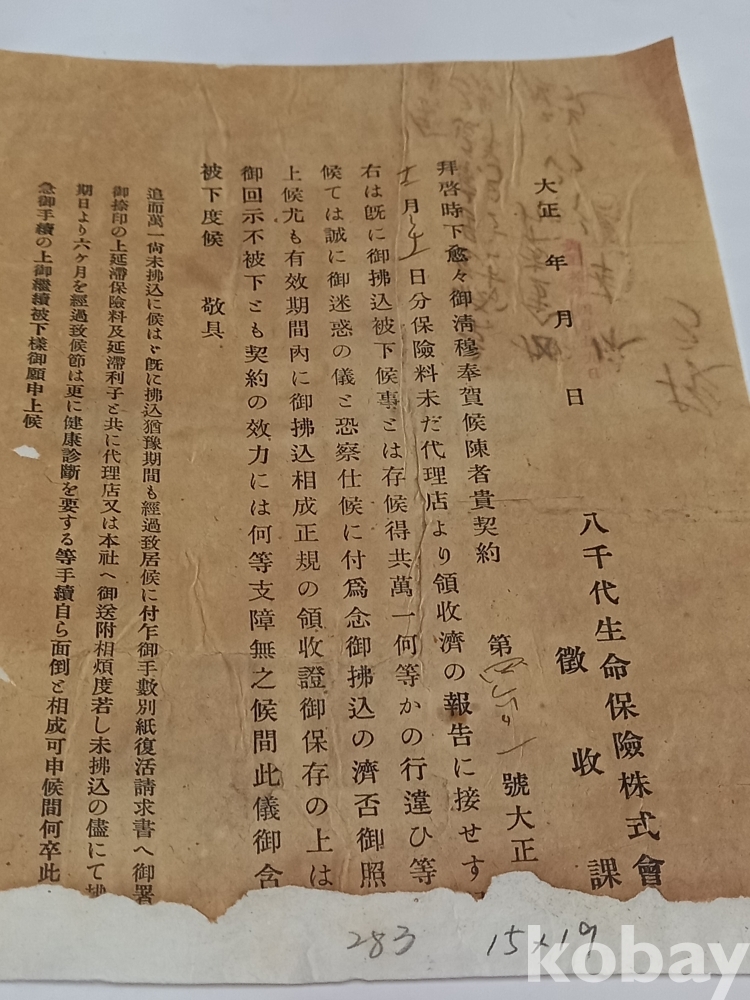 大正 年 月 日
八千代生命保險株式會
徵收課
拜啓時下愈々御淸穆奉賀候陳者貴契約 第 號大正
月 日分保險料未だ代理店より領收濟の報告に接せす
右は既に御拂込被下候事とは存候得共萬一何等かの行違ひ等
候ては誠に御迷惑の儀と恐察仕候に付爲念御拂込の濟否御照
上候尤も有效期間內に御拂込相成正規の領收證御保存の上は
御回示不被下とも契約の效力には何等支障無之候間此儀御含
被下度候 敬具
追而萬一尙未拂込に候はゞ既に拂込猶豫期間も經過致居候に付乍御手數別紙復活請求書へ御署
御捺印の上延滯保險料及延滯利子と共に代理店又は本社へ御送附相煩度若し未拂込の儘にて拂
期日より六ケ月を經過致候節は更に健康診斷を要する等手續自ら面倒と相成可申候間何卒此
急御手續の上御繼續被下樣御願申上候
283 15×19
kobay